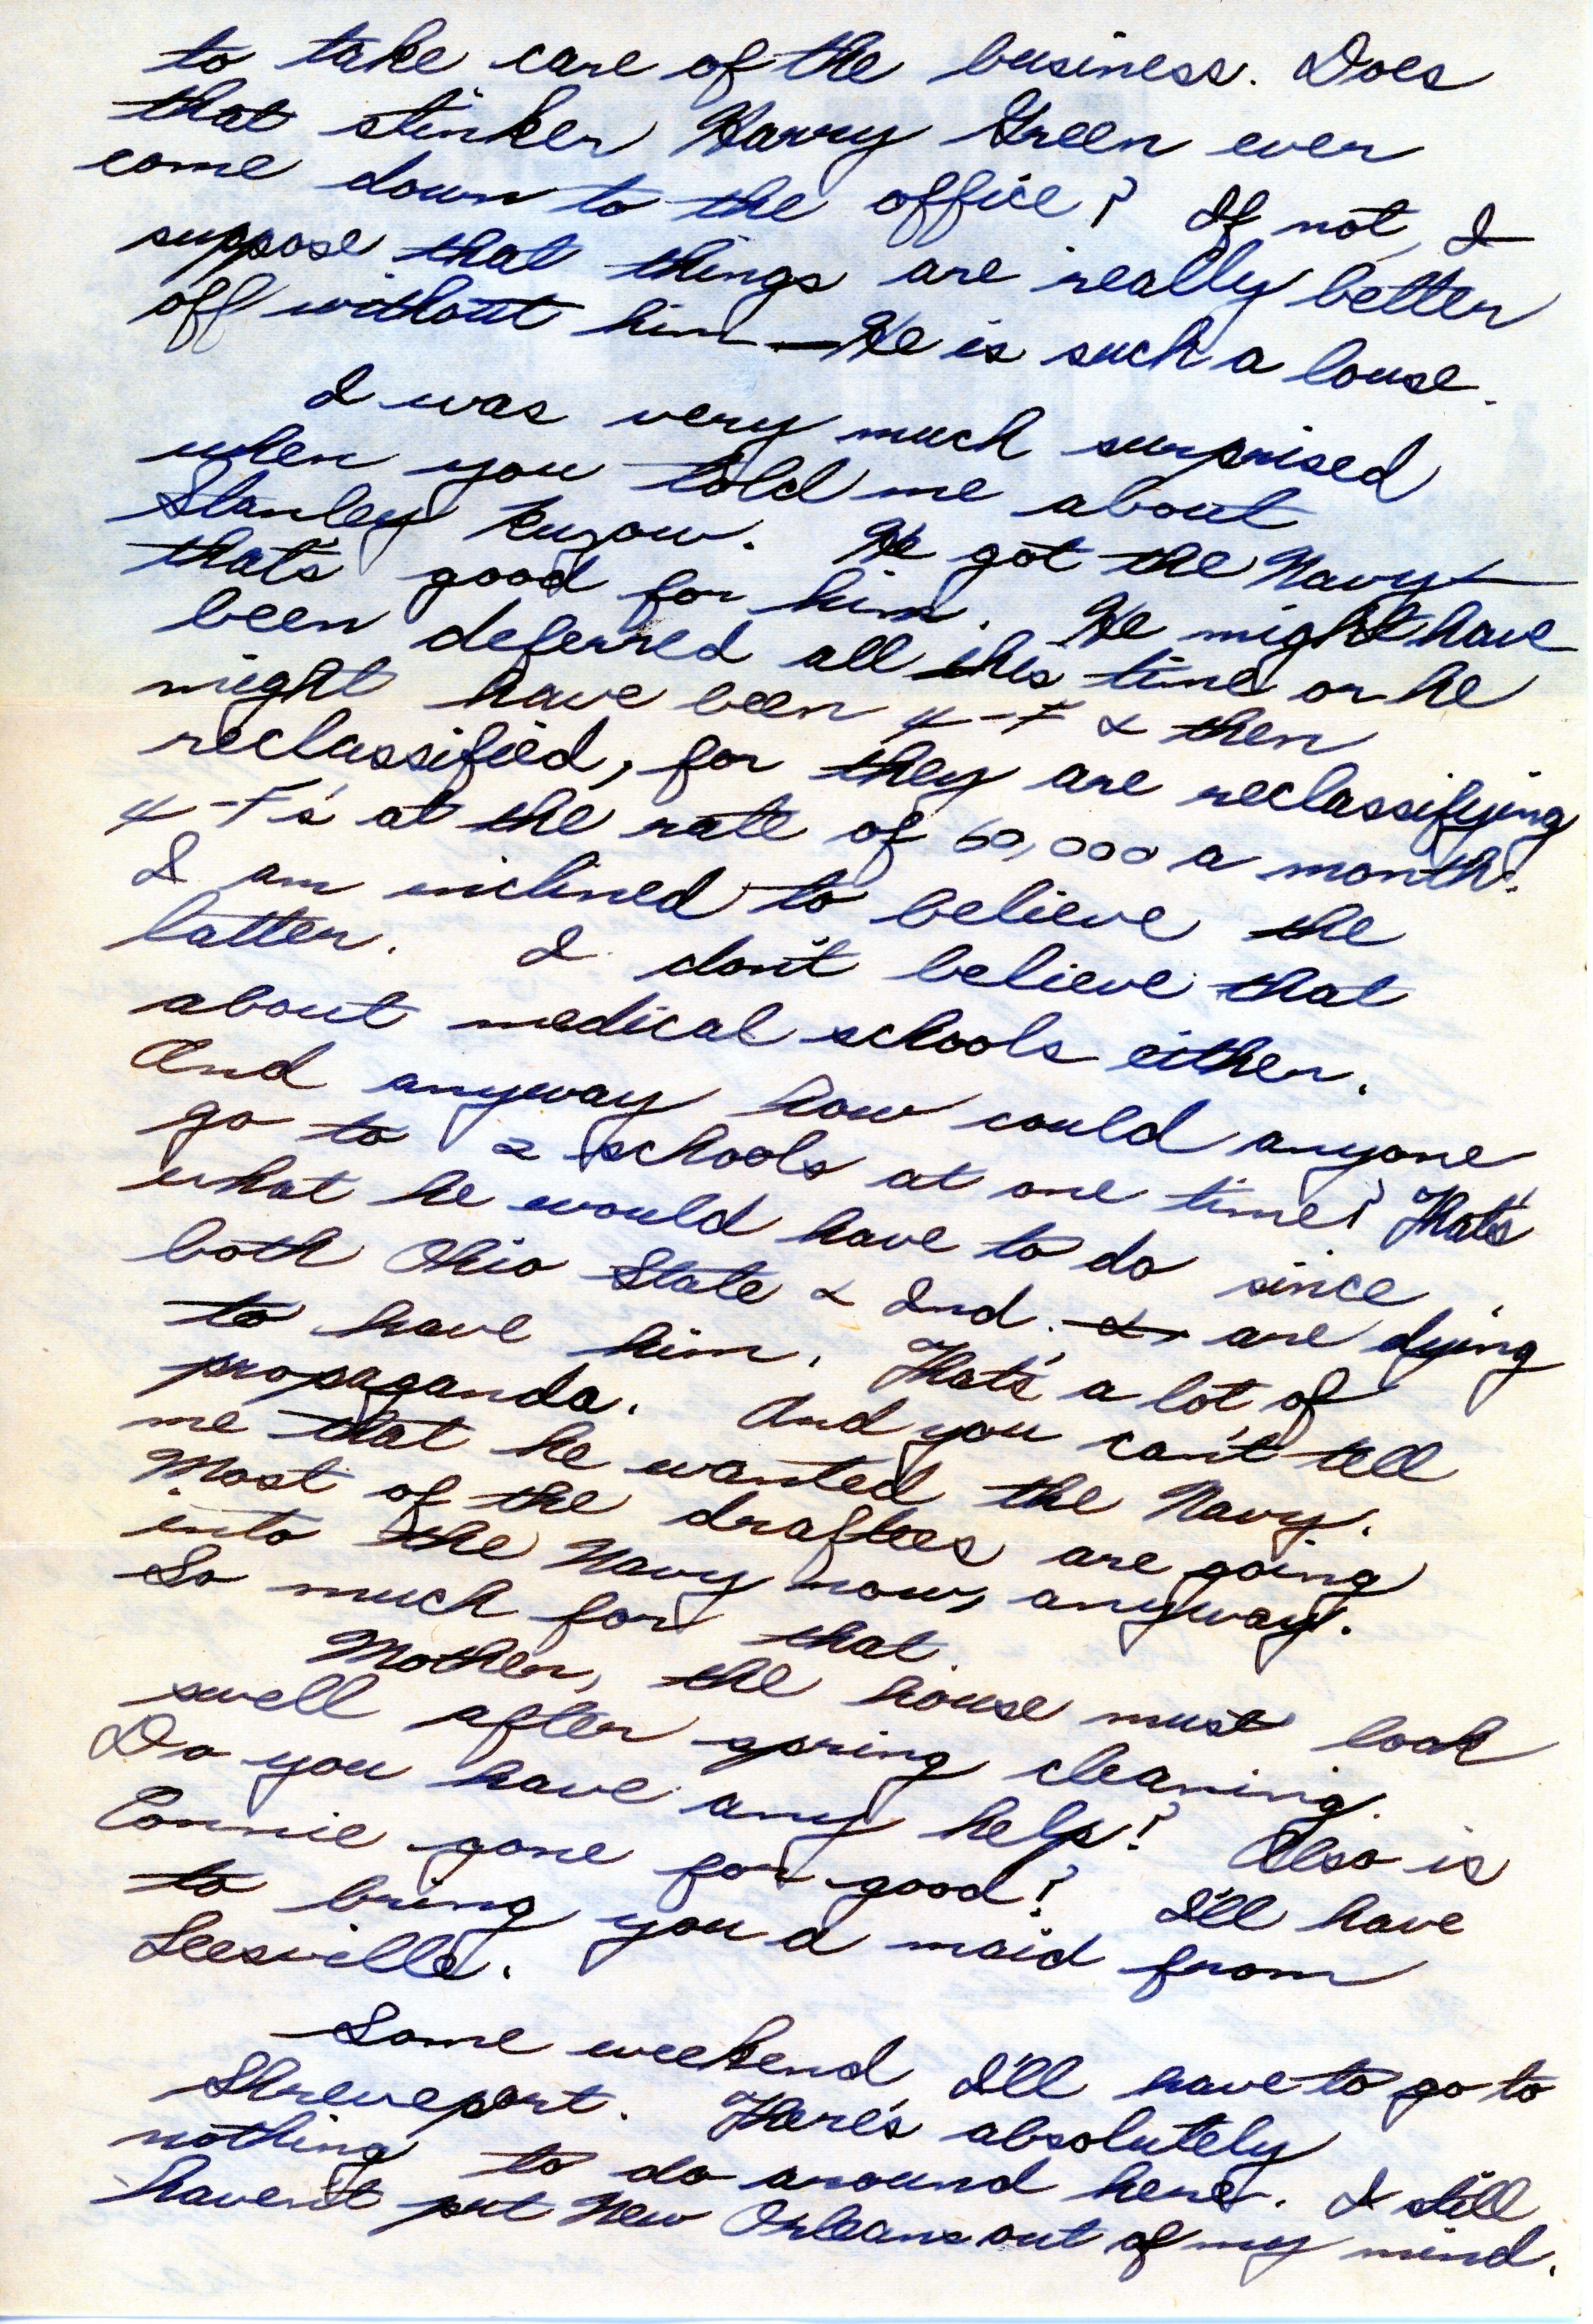 to take care of the business. Does
that stinker Harry Green ever
come down to the office? If not, I
suppose that things are really better
off without him — He is such a louse.
I was very much surprised
when you told me about
Stanley He got the Navy —
that's good for him. He might have
been deferred all this time or he
might have been 4-F & then
reclassified, for they are reclassifying
4-F's at the rate of 60,000 a month.
I am inclined to believe the
latter. I don't believe that
about medical schools either.
And anyway how could anyone
go to 2 schools at one time? That's
what he would have to do since
both Ohio State & Ind. are dying
to have him. That's a lot of
propaganda. And you can't tell
me that he wanted the Navy.
Most of the draftees are going
into the Navy now, anyway.
So much for that.
Mother, the house must look
swell after spring cleaning.
Do you have any help? Also is
Connie gone for good? I'll have
to bring you a maid from
Leesville.
Some weekend I'll have to go to
Shreveport. There's absolutely
nothing to do around here. I still
haven't put New Orleans out of my mind.